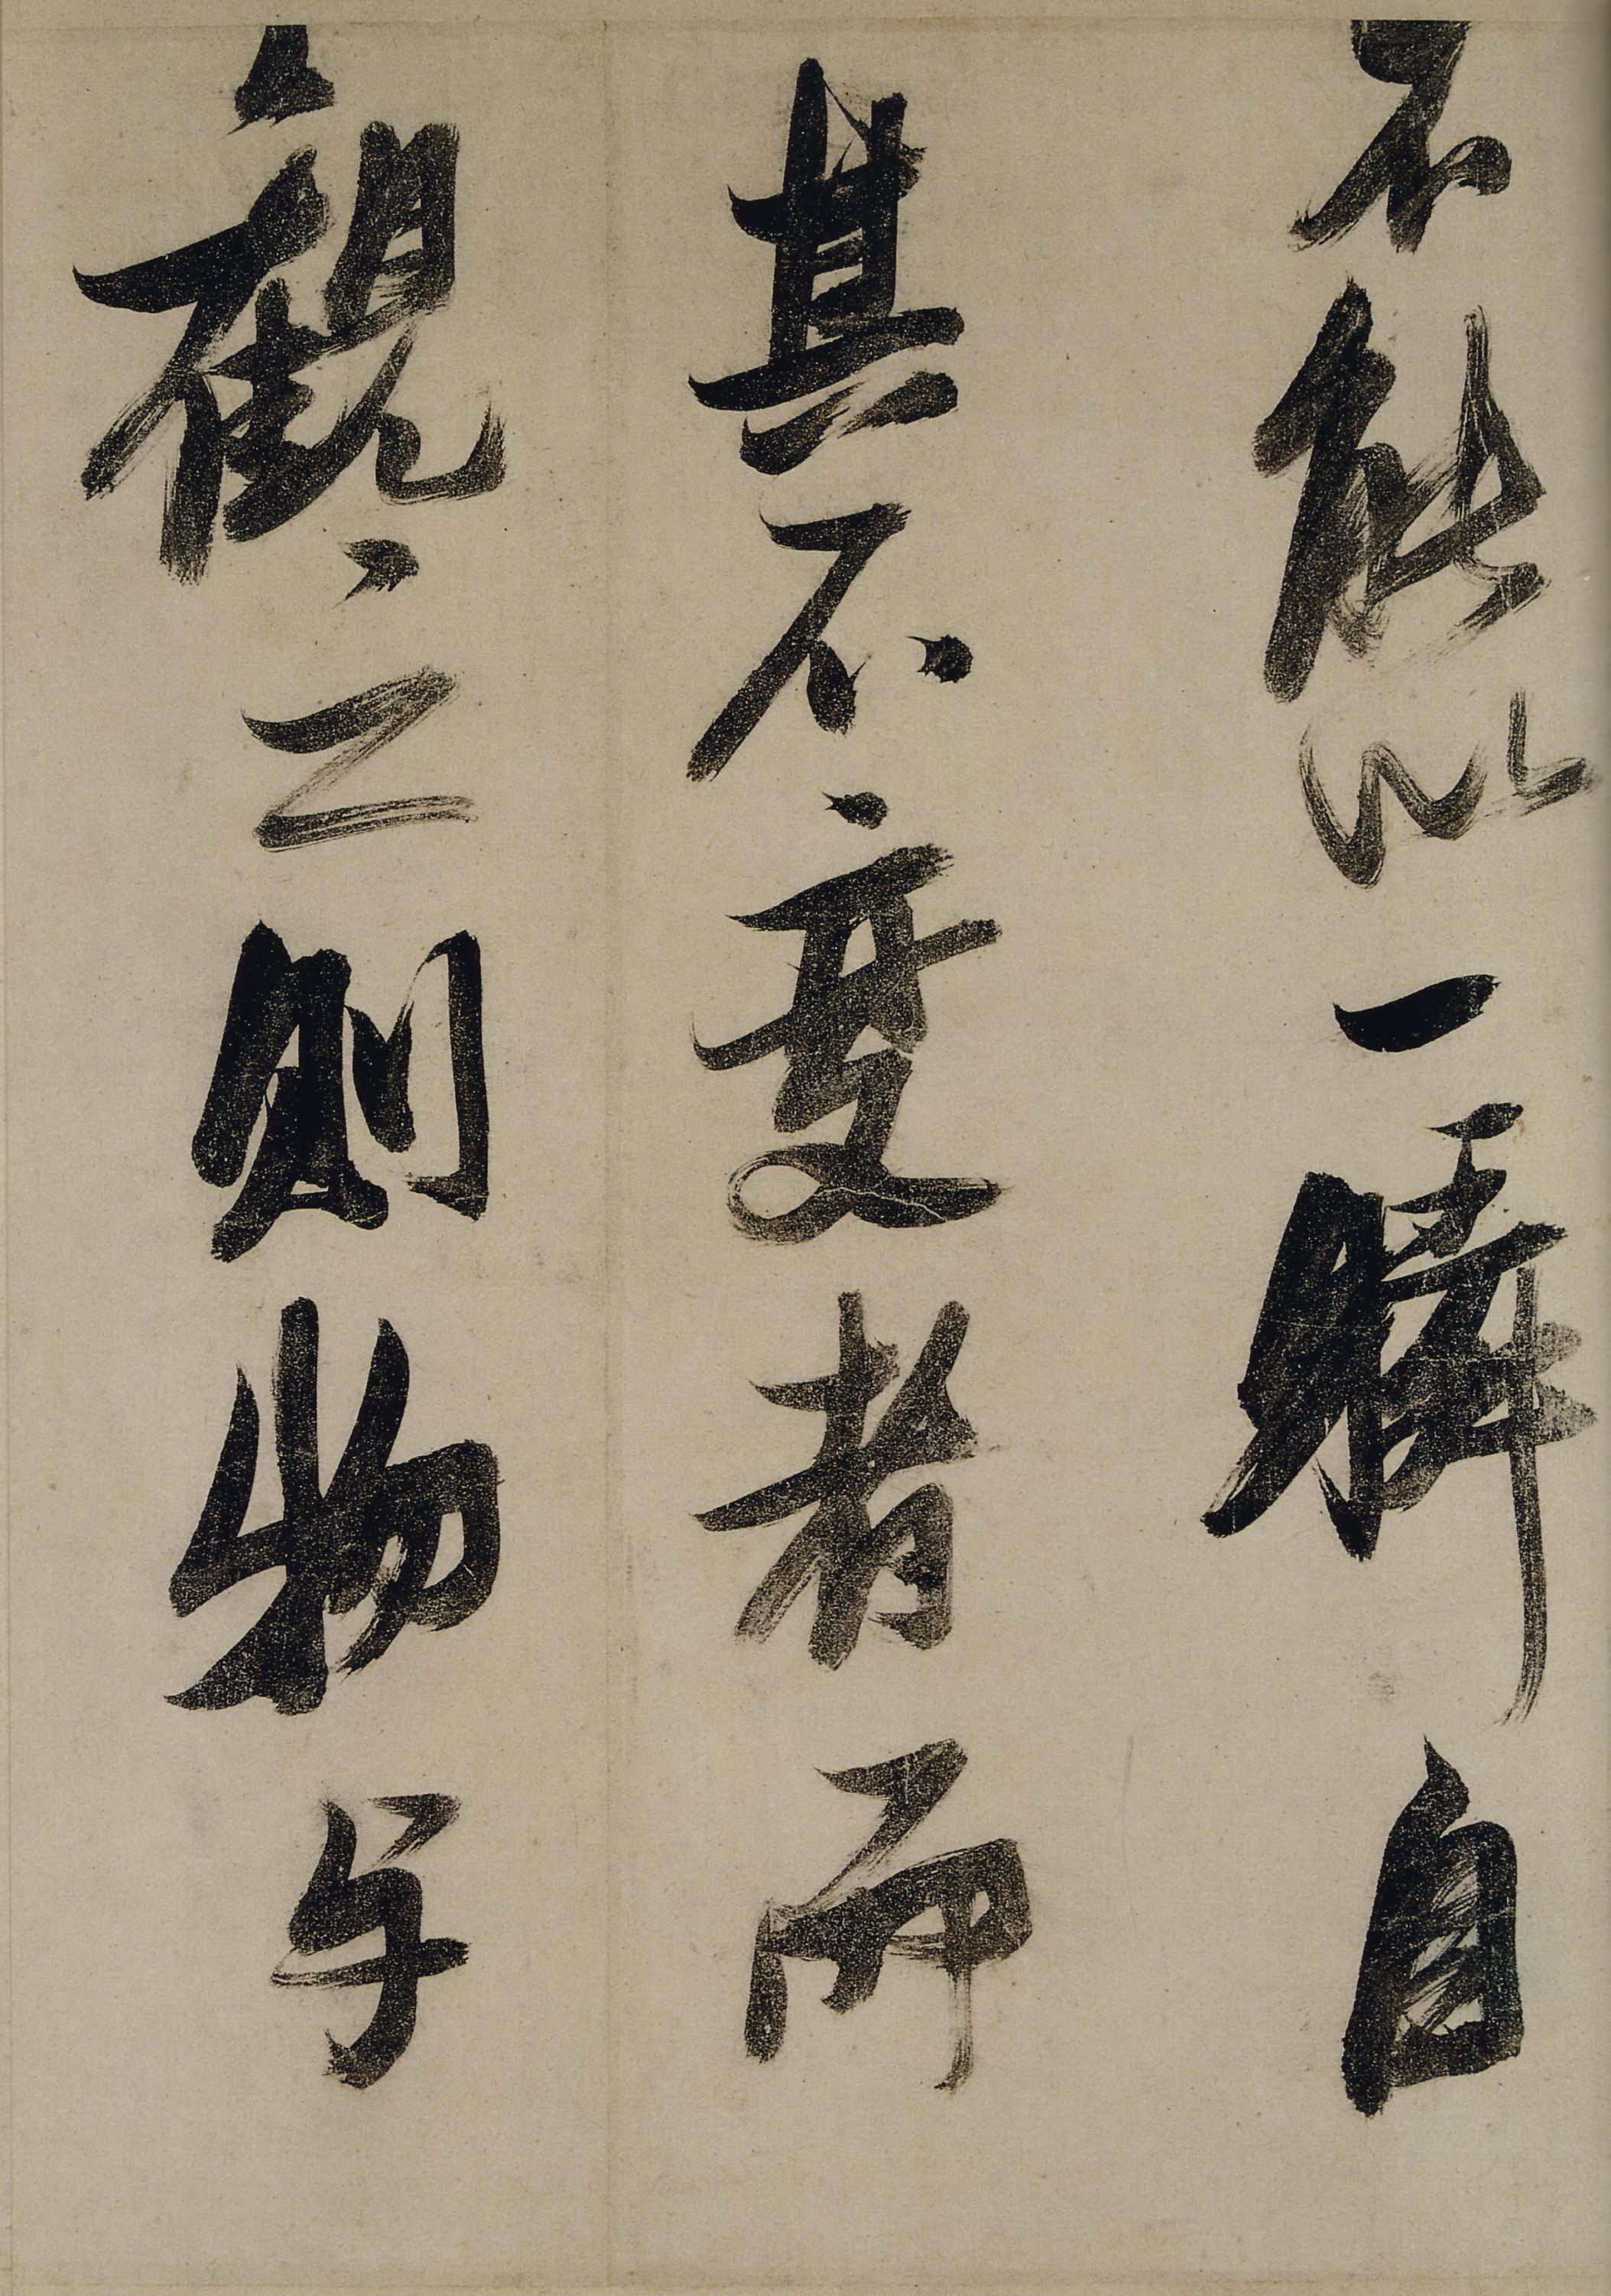 不能以一瞬自
其不變者而
觀之則物与